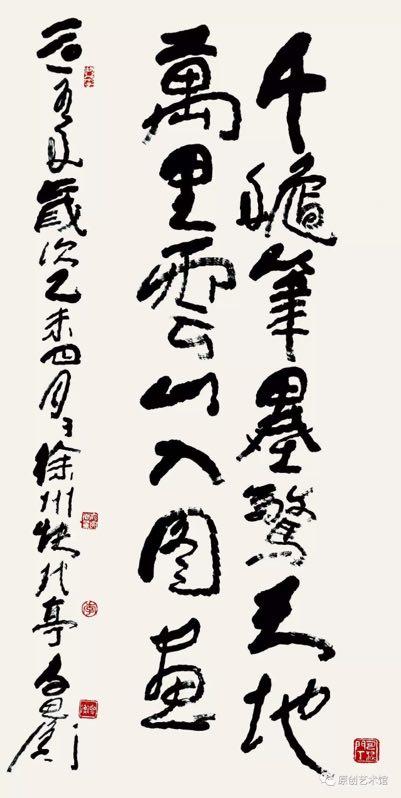 千穐筆墨驚天地
萬里雲山入圖畫
歲次乙未四月於徐州快哉亭
原创艺术馆